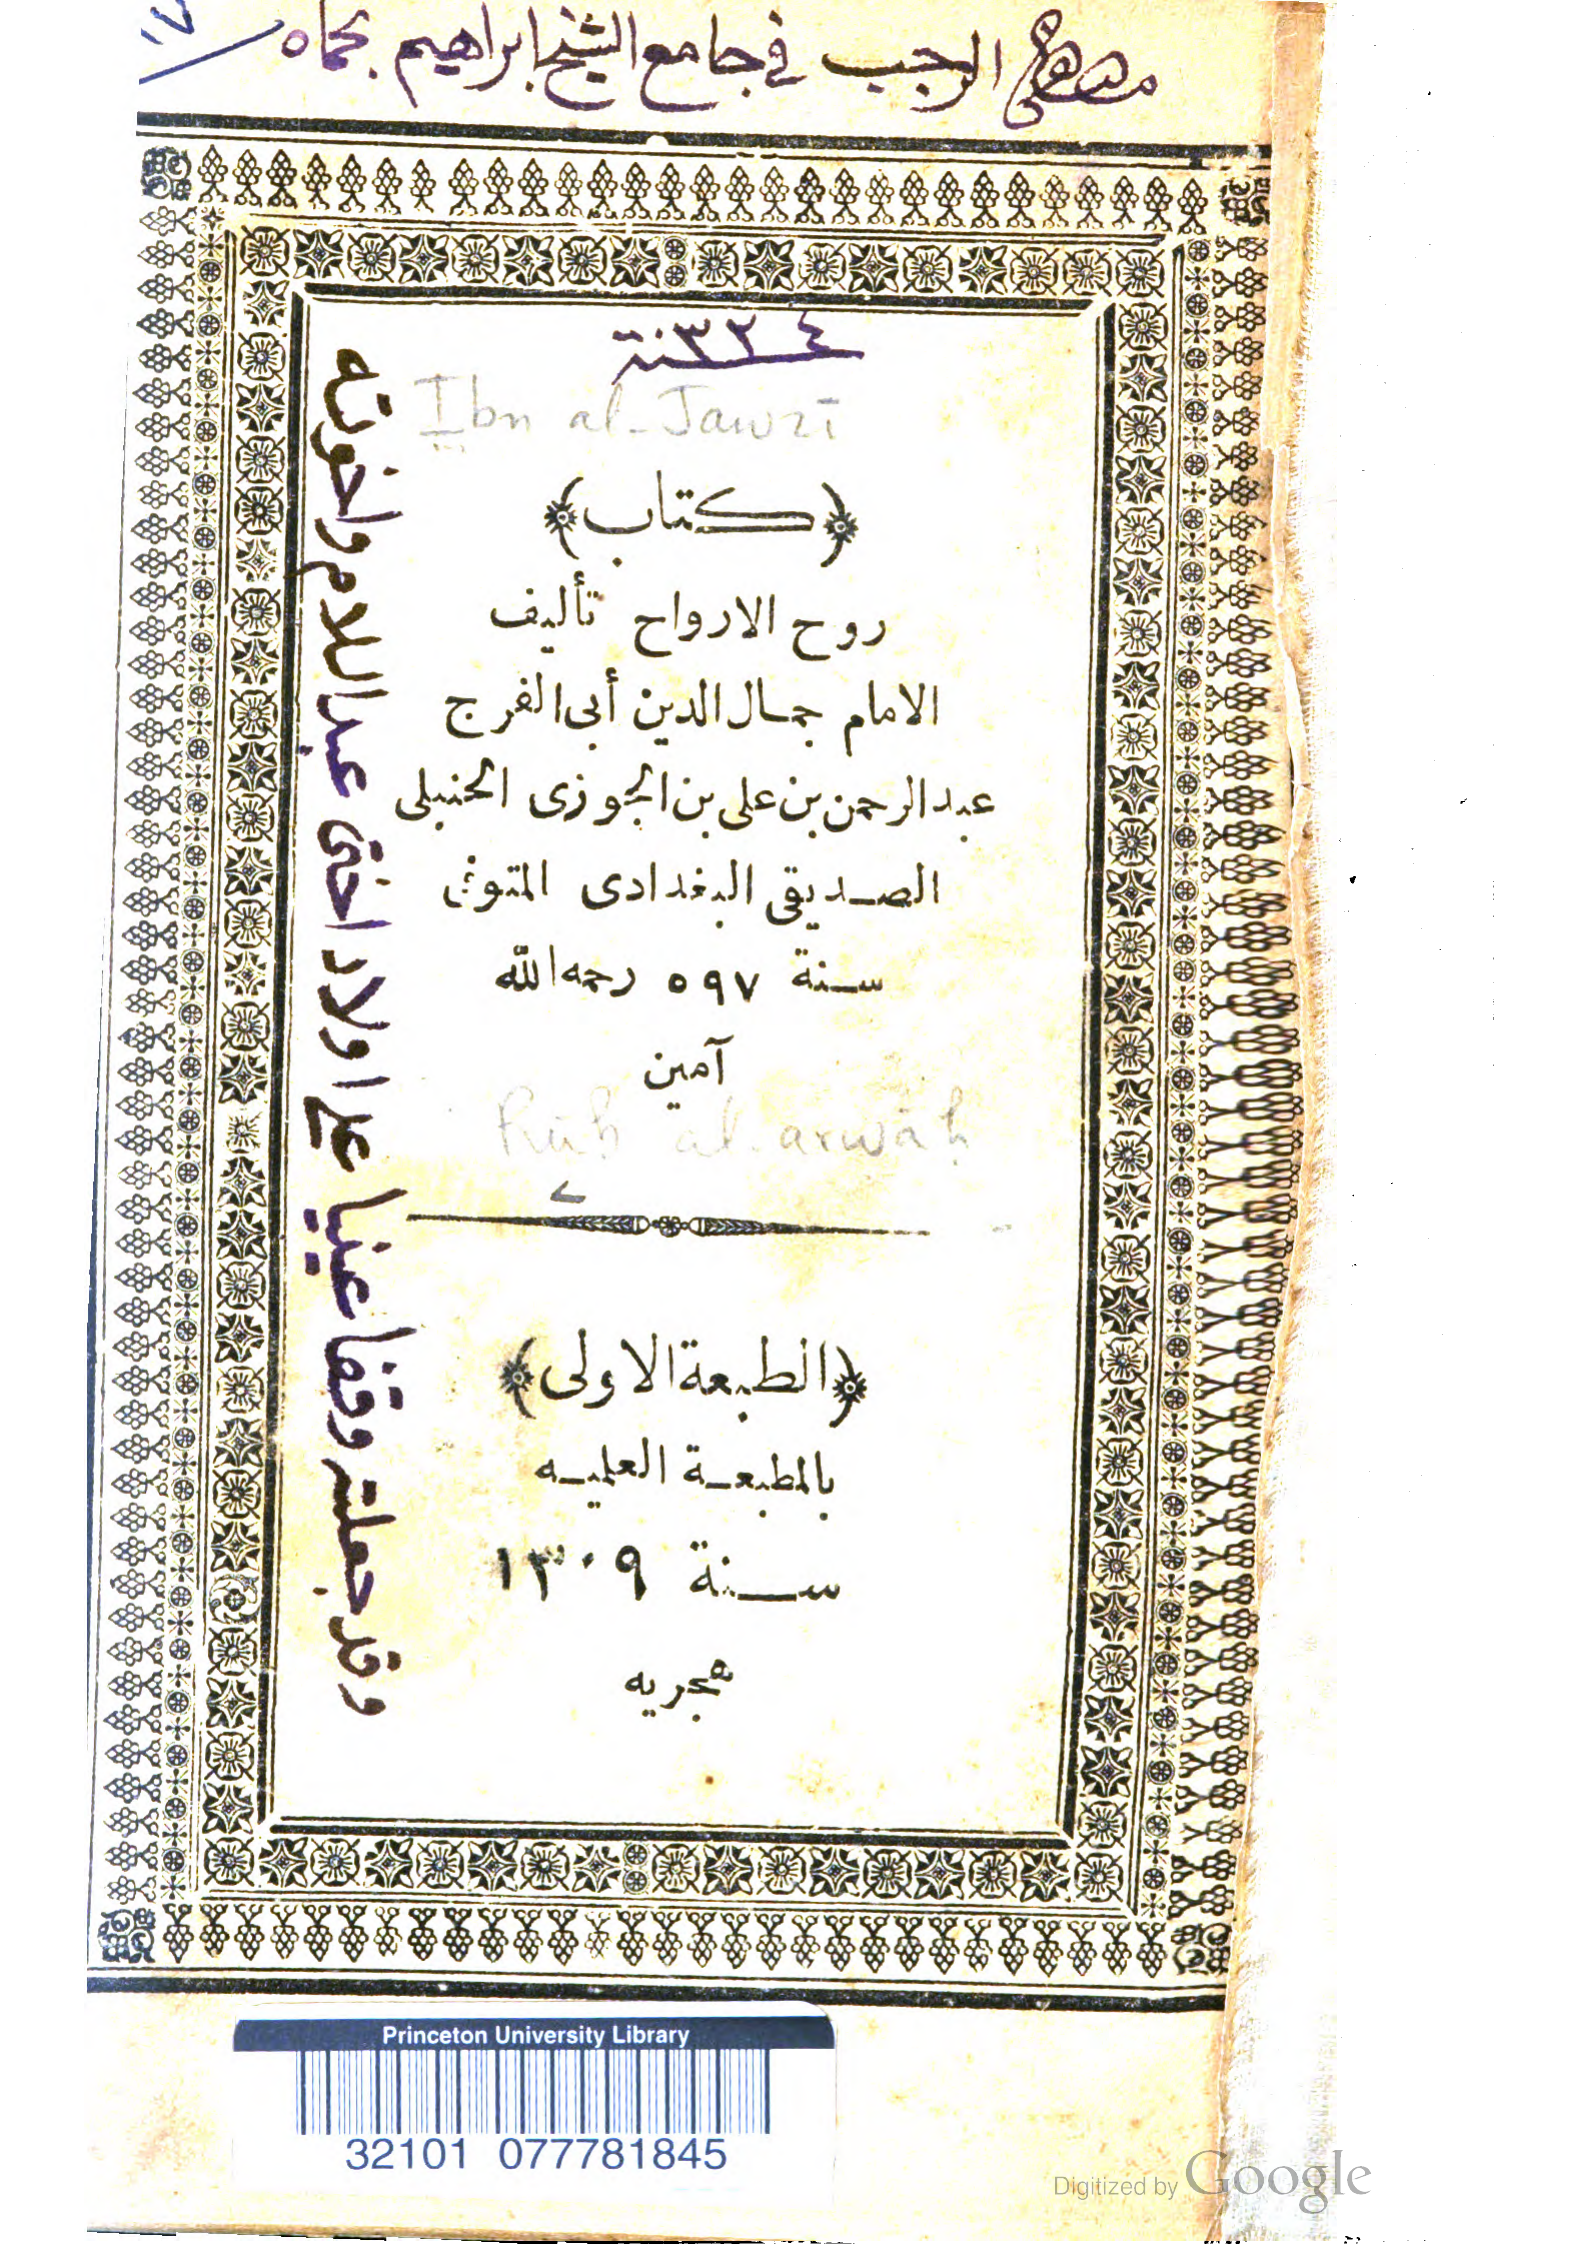 الرجب في جامع الشيخ ابراهيم بحماه
٣٢٤ سنة
Ibn al-Jawzī
﴿كتاب﴾
روح الارواح تأليف
الامام جمال الدين أبى الفرج
عبد الرحمن بن على بن الجوزى الحنبلى
الصديقى البغدادى المتوفى
سنة ٥٩٧ رحمه الله
آمين
Rūḥ al-arwāḥ
﴿الطبعة الاولى﴾
بالمطبعة العلميه
سنة ١٣٠٩
هجريه
وقد جعلته وقفا عينيا على اولاد اخى عبد اللام واخوته
Princeton University Library
32101 077781845
Digitized by Google